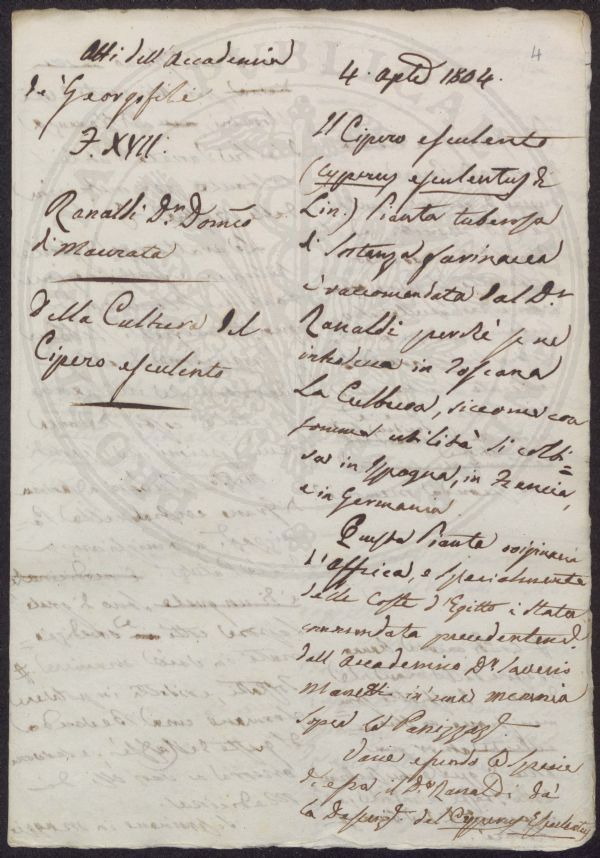 4
Atti dell'Accademia
de' Georgofili
T. XVII.
Ranaldi Dn. Domco
di Macerata
Della Cultura del
Cipero esculento
4. Aple 1804.
Il Cipero esculento
(Cyperus esculentus di
Lin.) Pianta tuberosa
di sostanza farinacea
è raccomandata dal Dr
Ranaldi perchè se ne
introduca in Toscana
La Cultura, siccome con
somma utilità si colti=
va in Ispagna, in Francia,
e in Germania.
Questa Pianta originaria
d'Affrica, e specialmente
delle Coste d'Egitto è stata
precedentemte
dall'Accademico Dr. Saverio
Manetti in una memoria
sopra la
Varie essendo le specie
di essa, il Dr. Ranaldi dà
la del Cyperus Esculentus